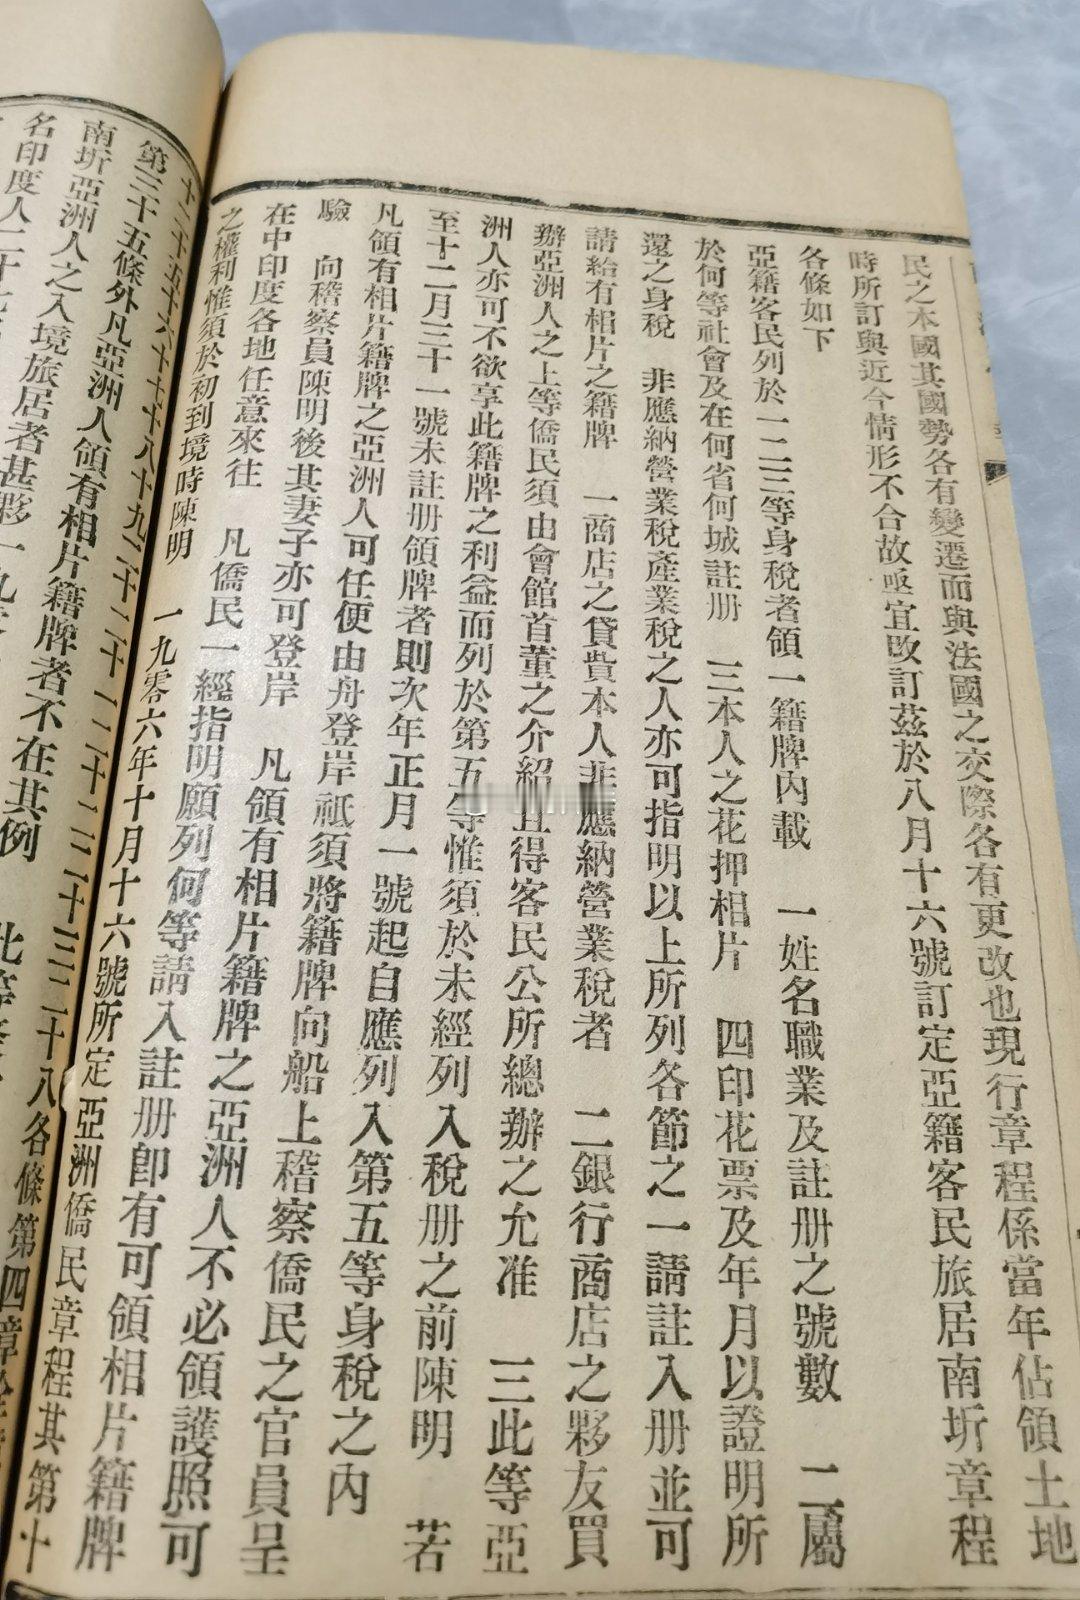 民之本國其國勢各有變遷而與法國之交際各有更改也現行章程係當年佔領土地
時所訂與近今情形不合故亟宜改訂茲於八月十六號訂定亞籍客民旅居南圻章程
各條如下
亞籍客民列於一二三等身稅者領一籍牌內載 一姓名職業及註册之號數 二屬
於何等社會及在何省何城註册 三本人之花押相片 四印花票及年月以證明所
還之身稅 非應納營業稅產業稅之人亦可指明以上所列各節之一請註入册並可
請給有相片之籍牌 一商店之貸貲本人非應納營業稅者 二銀行商店之夥友買
辦亞洲人之上等僑民須由會館首董之介紹且得客民公所總辦之允准 三此等亞
洲人亦可不欲享此籍牌之利益而列於第五等惟須於未經列入稅册之前陳明 若
至十二月三十一號未註册領牌者則次年正月一號起自應列入第五等身稅之內
凡領有相片籍牌之亞洲人可任便由舟登岸祇須將籍牌向船上稽察僑民之官員呈
驗 向稽察員陳明後其妻子亦可登岸 凡領有相片籍牌之亞洲人不必領護照可
在中印度各地任意來往 凡僑民一經指明願列何等請入註册卽有可領相片籍牌
之權利惟須於初到境時陳明 一九零六年十月十六號所定亞洲僑民章程其第十
十二十五十六十七十八十九二十二十一二十二二十三二十八各條第四章
第三十五條外凡亞洲人領有相片籍牌者不在其例 此等
南圻亞洲人之入境旅居者甚夥一九零
名印度人二十七